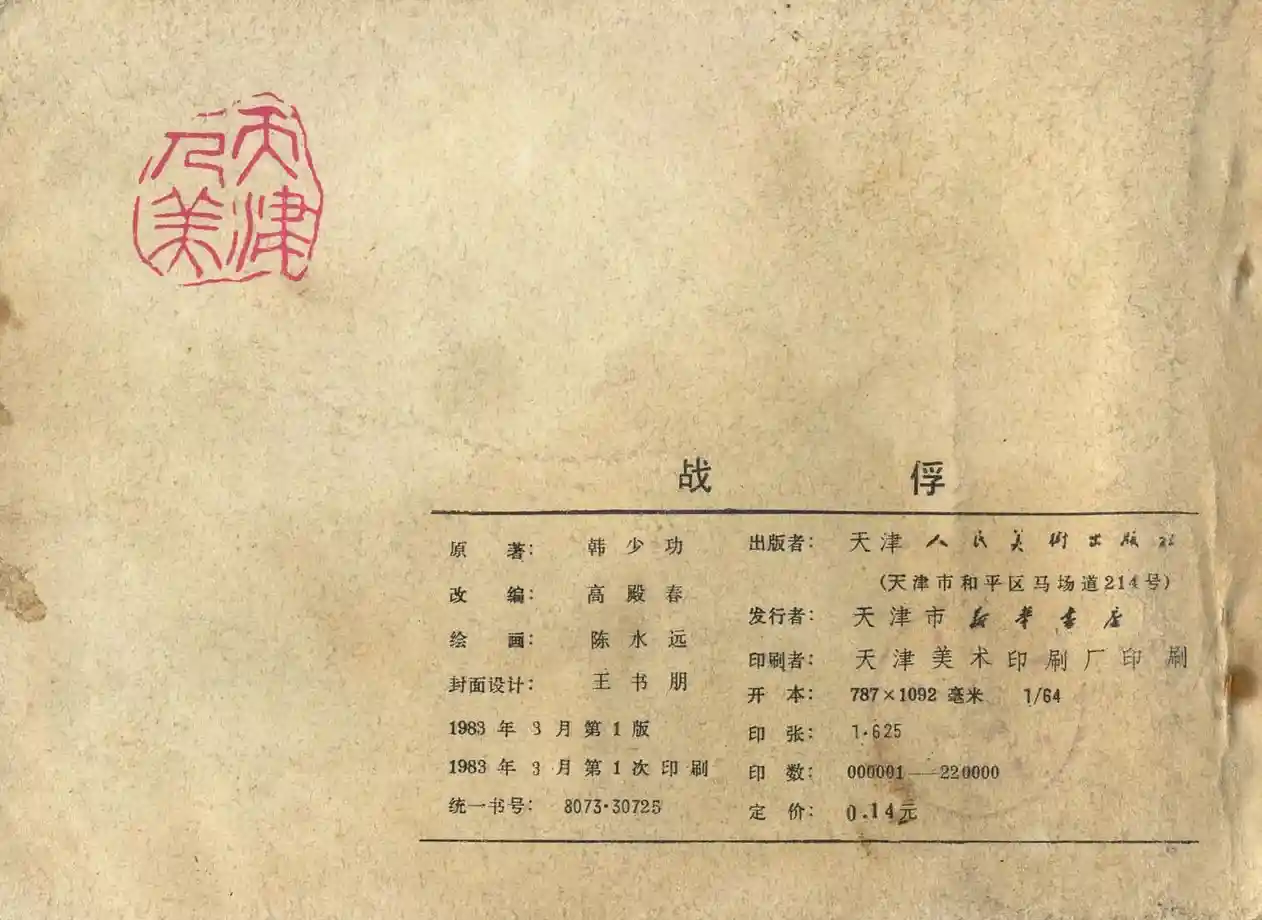 天津
人美
战 俘
原 著： 韩 少 功
改 编： 高 殿 春
绘 画： 陈 水 远
封面设计： 王 书 朋
1983 年 3 月 第 1 版
1983 年 3 月 第 1 次 印 刷
统一书号： 8073·30725
出版者： 天津人民美術出版社
（天津市和平区马场道214号）
发行者： 天津市新華書店
印刷者： 天津美术印刷厂印刷
开 本： 787×1092 毫米 1/64
印 张： 1·625
印 数： 000001——220000
定 价： 0.14元